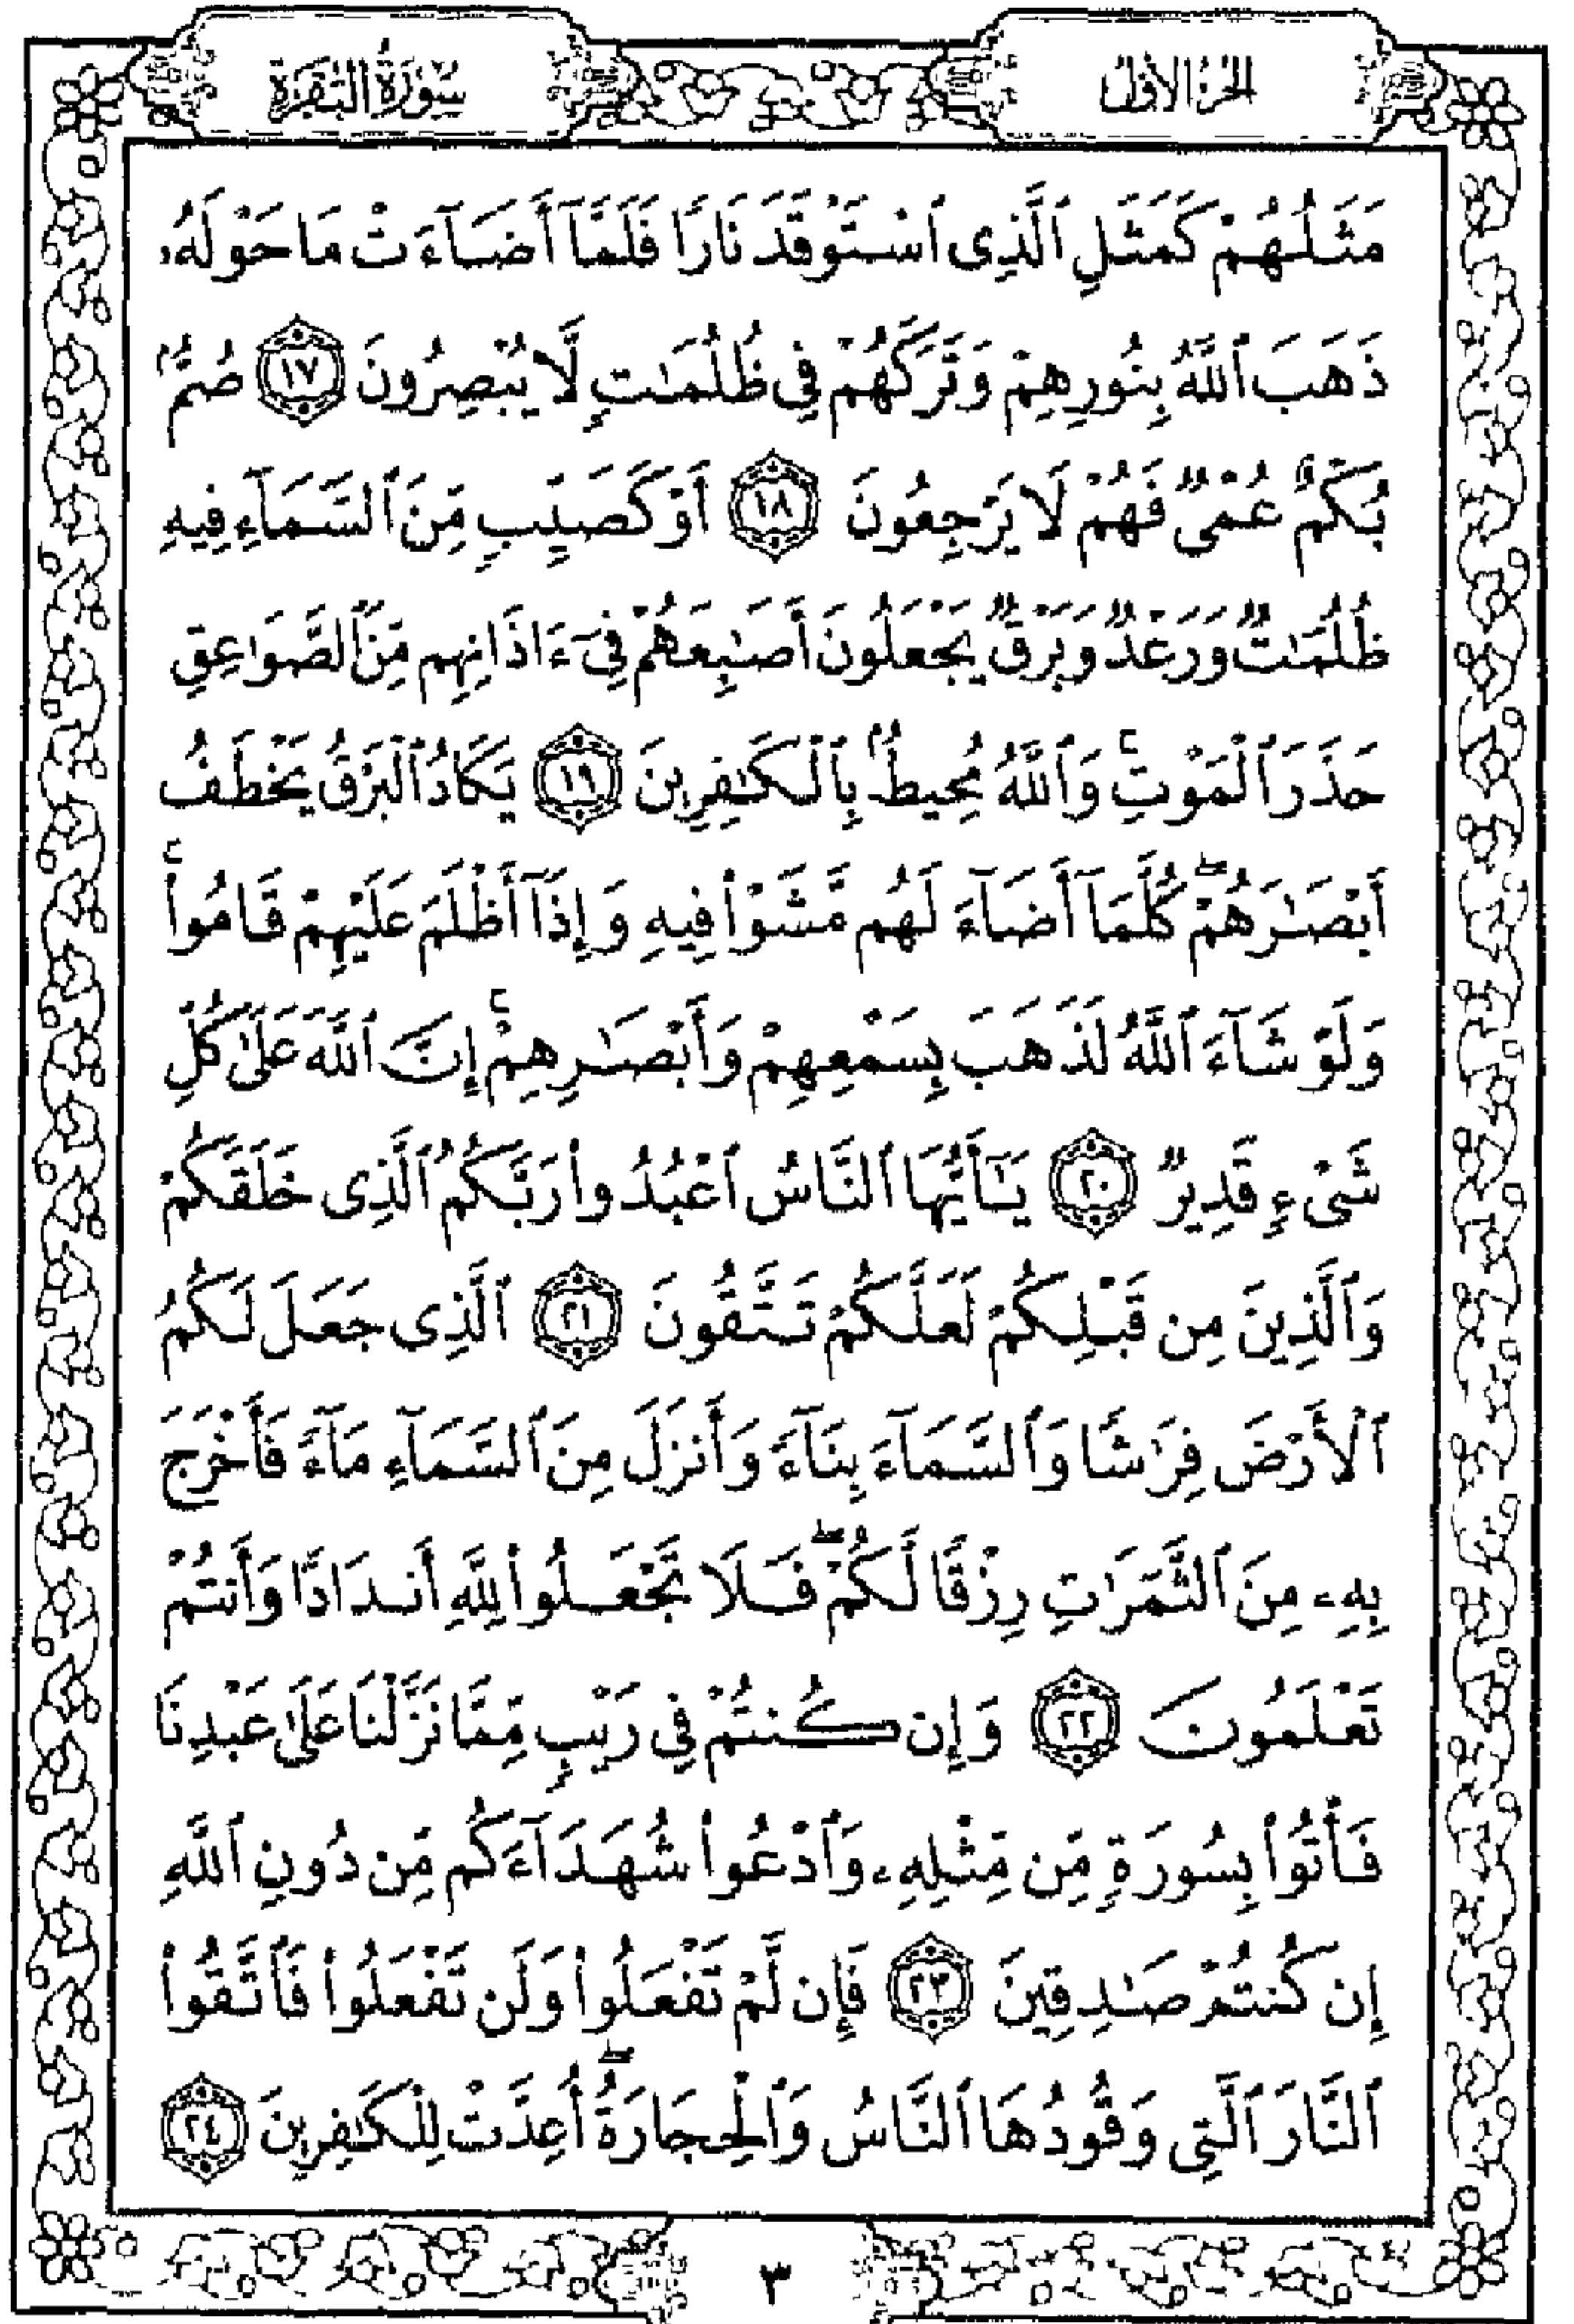 الجزء الأول
سورة البقرة
مَثَلُهُمْ كَمَثَلِ ٱلَّذِى ٱسْتَوْقَدَ نَارًا فَلَمَّآ أَضَآءَتْ مَا حَوْلَهُۥ
ذَهَبَ ٱللَّهُ بِنُورِهِمْ وَتَرَكَهُمْ فِى ظُلُمَـٰتٍ لَّا يُبْصِرُونَ ١٧ صُمٌّۢ
بُكْمٌ عُمْىٌ فَهُمْ لَا يَرْجِعُونَ ١٨ أَوْ كَصَيِّبٍ مِّنَ ٱلسَّمَآءِ فِيهِ
ظُلُمَـٰتٌ وَرَعْدٌ وَبَرْقٌ يَجْعَلُونَ أَصَـٰبِعَهُمْ فِىٓ ءَاذَانِهِم مِّنَ ٱلصَّوَٰعِقِ
حَذَرَ ٱلْمَوْتِۚ وَٱللَّهُ مُحِيطٌۢ بِٱلْكَـٰفِرِينَ ١٩ يَكَادُ ٱلْبَرْقُ يَخْطَفُ
أَبْصَـٰرَهُمْۖ كُلَّمَآ أَضَآءَ لَهُم مَّشَوْا۟ فِيهِ وَإِذَآ أَظْلَمَ عَلَيْهِمْ قَامُوا۟ۚ
وَلَوْ شَآءَ ٱللَّهُ لَذَهَبَ بِسَمْعِهِمْ وَأَبْصَـٰرِهِمْۚ إِنَّ ٱللَّهَ عَلَىٰ كُلِّ
شَىْءٍ قَدِيرٌ ٢٠ يَـٰٓأَيُّهَا ٱلنَّاسُ ٱعْبُدُوا۟ رَبَّكُمُ ٱلَّذِى خَلَقَكُمْ
وَٱلَّذِينَ مِن قَبْلِكُمْ لَعَلَّكُمْ تَتَّقُونَ ٢١ ٱلَّذِى جَعَلَ لَكُمُ
ٱلْأَرْضَ فِرَٰشًا وَٱلسَّمَآءَ بِنَآءً وَأَنزَلَ مِنَ ٱلسَّمَآءِ مَآءً فَأَخْرَجَ
بِهِۦ مِنَ ٱلثَّمَرَٰتِ رِزْقًا لَّكُمْۖ فَلَا تَجْعَلُوا۟ لِلَّهِ أَندَادًا وَأَنتُمْ
تَعْلَمُونَ ٢٢ وَإِن كُنتُمْ فِى رَيْبٍ مِّمَّا نَزَّلْنَا عَلَىٰ عَبْدِنَا
فَأْتُوا۟ بِسُورَةٍ مِّن مِّثْلِهِۦ وَٱدْعُوا۟ شُهَدَآءَكُم مِّن دُونِ ٱللَّهِ
إِن كُنتُمْ صَـٰدِقِينَ ٢٣ فَإِن لَّمْ تَفْعَلُوا۟ وَلَن تَفْعَلُوا۟ فَٱتَّقُوا۟
ٱلنَّارَ ٱلَّتِى وَقُودُهَا ٱلنَّاسُ وَٱلْحِجَارَةُۖ أُعِدَّتْ لِلْكَـٰفِرِينَ ٢٤
٣